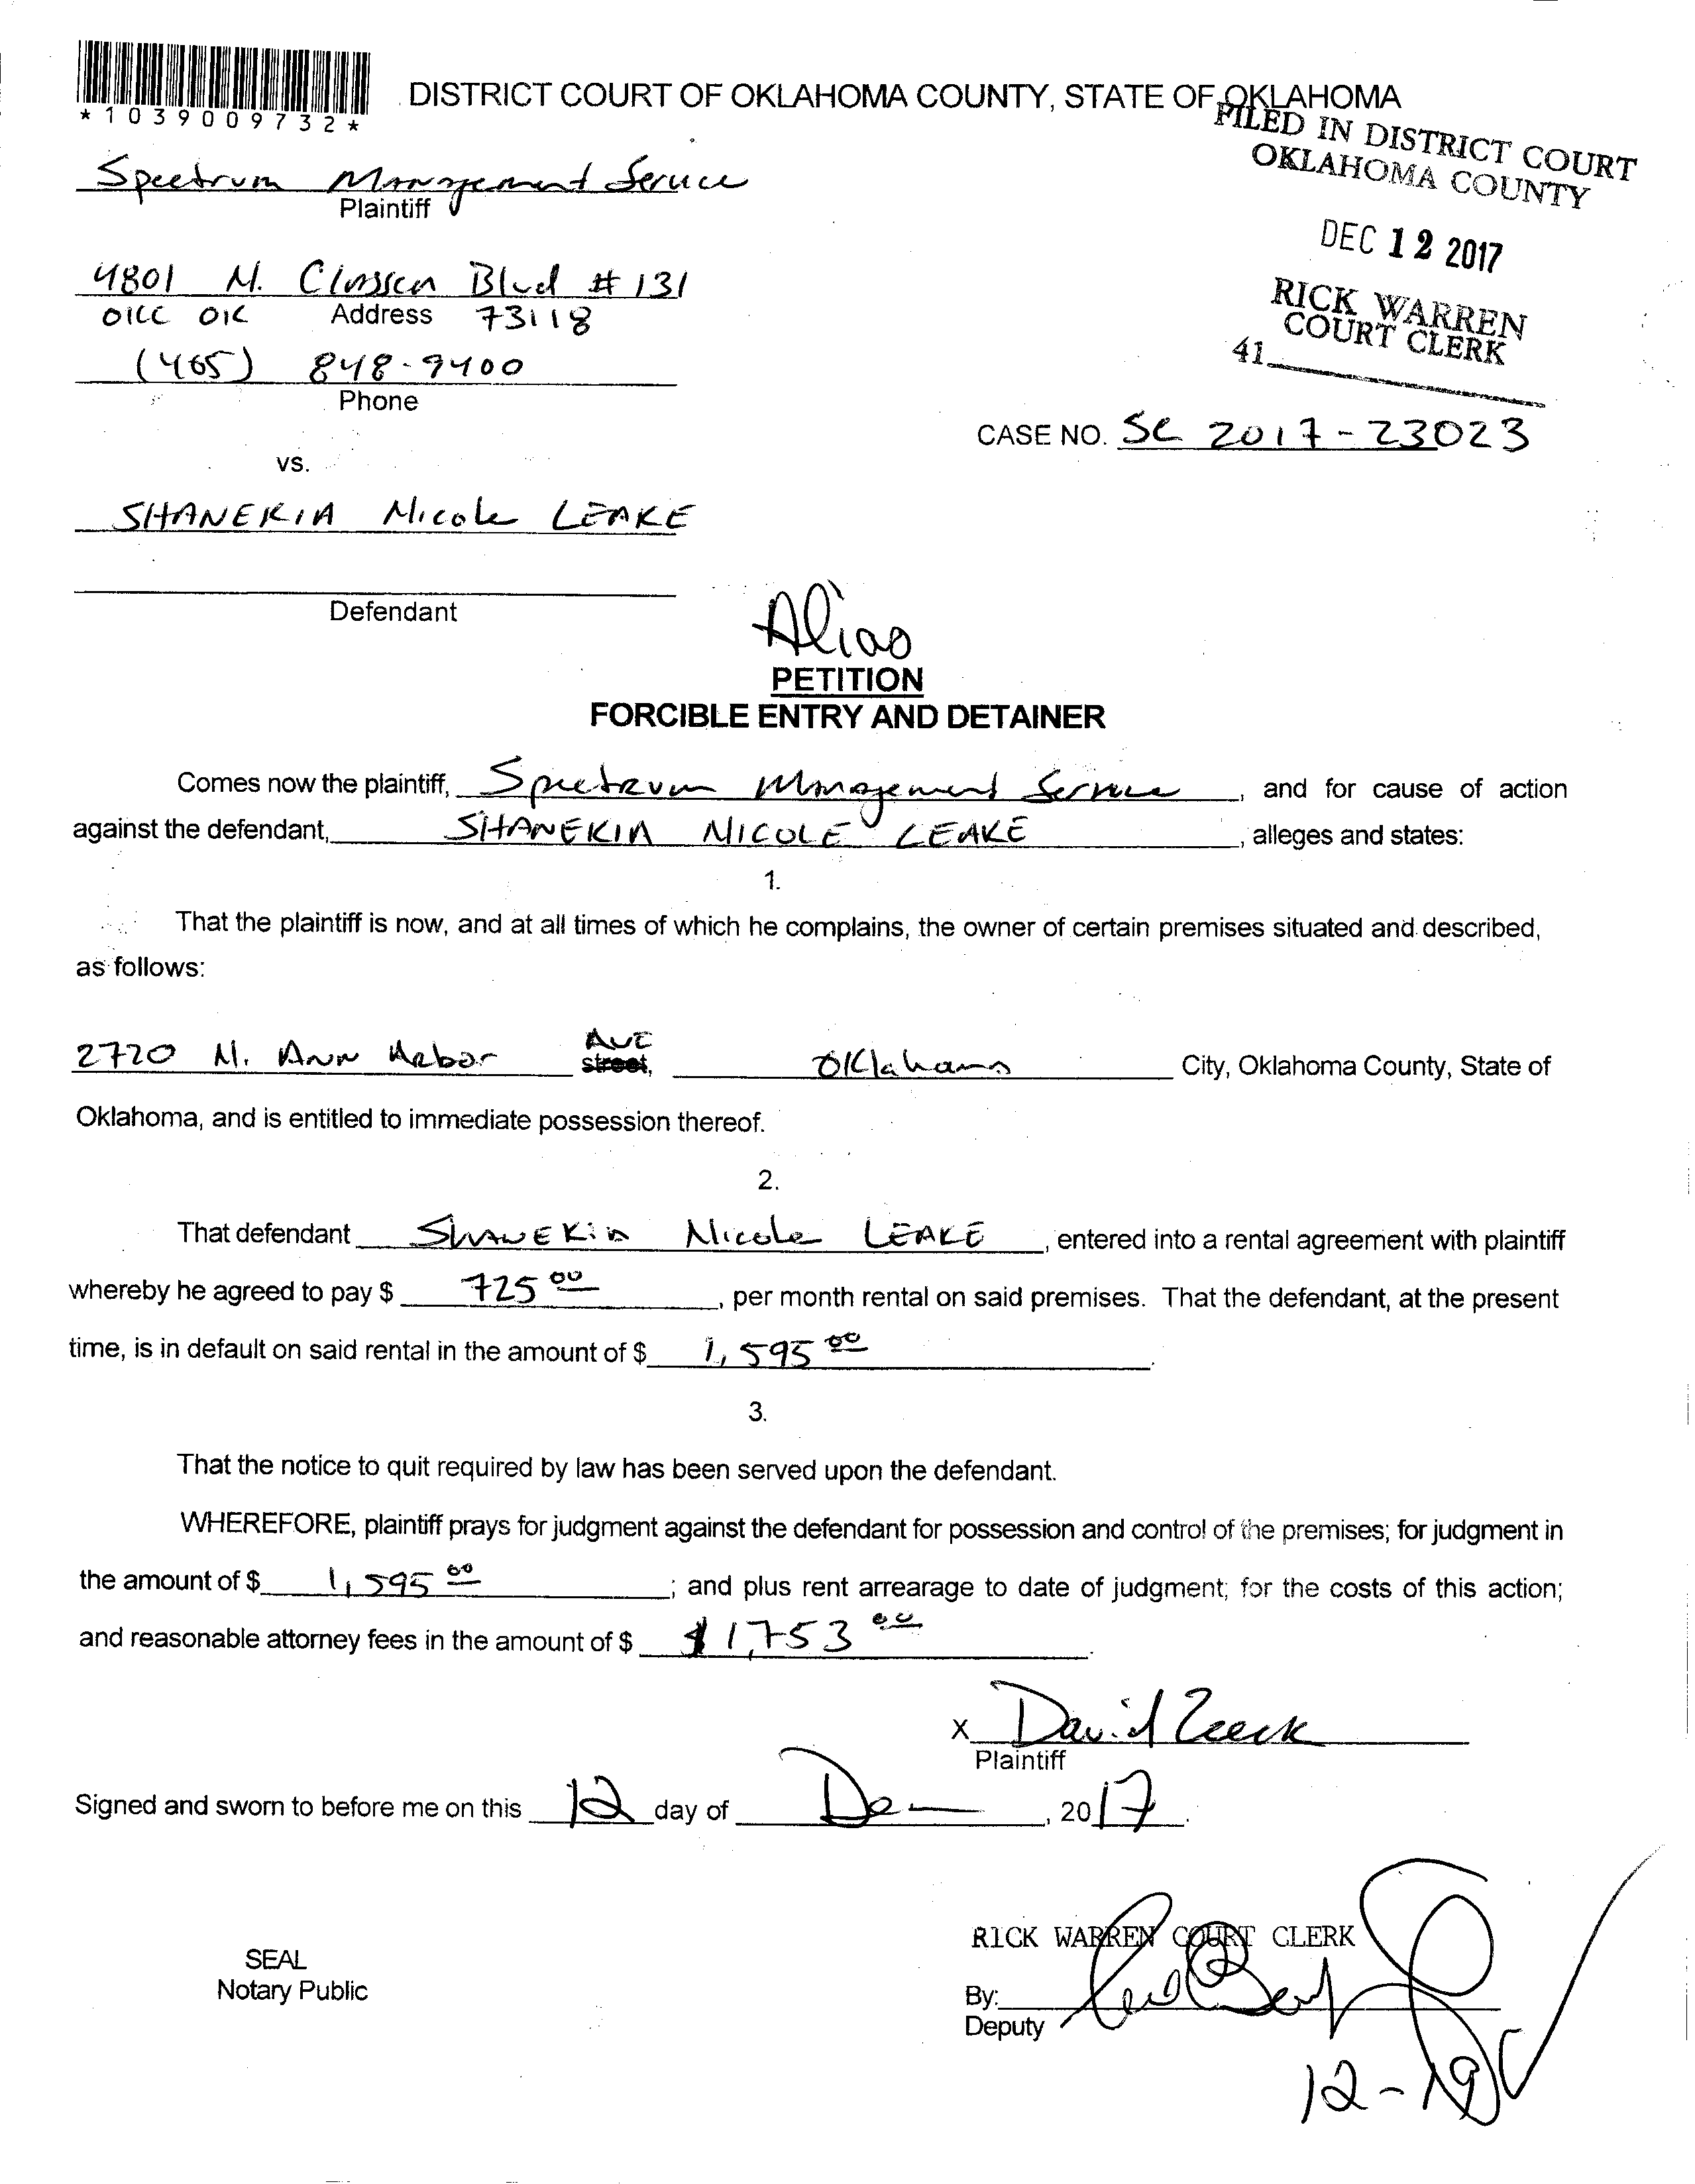 *1039009732*
DISTRICT COURT OF OKLAHOMA COUNTY, STATE OF OKLAHOMA
FILED IN DISTRICT COURT
OKLAHOMA COUNTY
DEC 12 2017
RICK WARREN
COURT CLERK
41
Spectrum Management Service
Plaintiff
4801 N. Classen Blvd # 131
OKC OK Address 73118
(405) 848-9400
Phone
CASE NO. SC 2017-23023
vs.
SHANEKIA Nicole LEAKE
Defendant
Alias
PETITION
FORCIBLE ENTRY AND DETAINER
Comes now the plaintiff, Spectrum Management Service, and for cause of action
against the defendant, SHANEKIA NICOLE LEAKE, alleges and states:
1.
That the plaintiff is now, and at all times of which he complains, the owner of certain premises situated and described,
as follows:
2720 N. Ann Arbor AVE street, Oklahoma City, Oklahoma County, State of
Oklahoma, and is entitled to immediate possession thereof.
2.
That defendant SHANEKIA Nicole LEAKE, entered into a rental agreement with plaintiff
whereby he agreed to pay $ 725 00, per month rental on said premises. That the defendant, at the present
time, is in default on said rental in the amount of $ 1,595 00.
3.
That the notice to quit required by law has been served upon the defendant.
WHEREFORE, plaintiff prays for judgment against the defendant for possession and control of the premises; for judgment in
the amount of $ 1,595 00; and plus rent arrearage to date of judgment; for the costs of this action;
and reasonable attorney fees in the amount of $ $1,753 00.
X David
Plaintiff
Signed and sworn to before me on this 12 day of De, 2017.
RICK WARREN COURT CLERK
SEAL
Notary Public
By:
Deputy
12-19